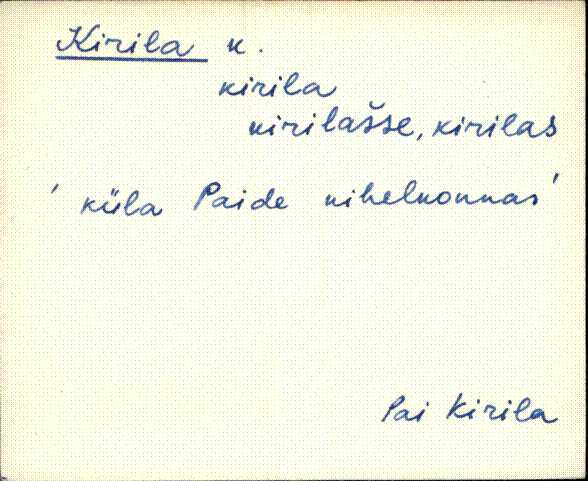 Kirila k.
kirila
kirilašse, kirilas
'küla Paide kihelkonnas'
Pai Kirila